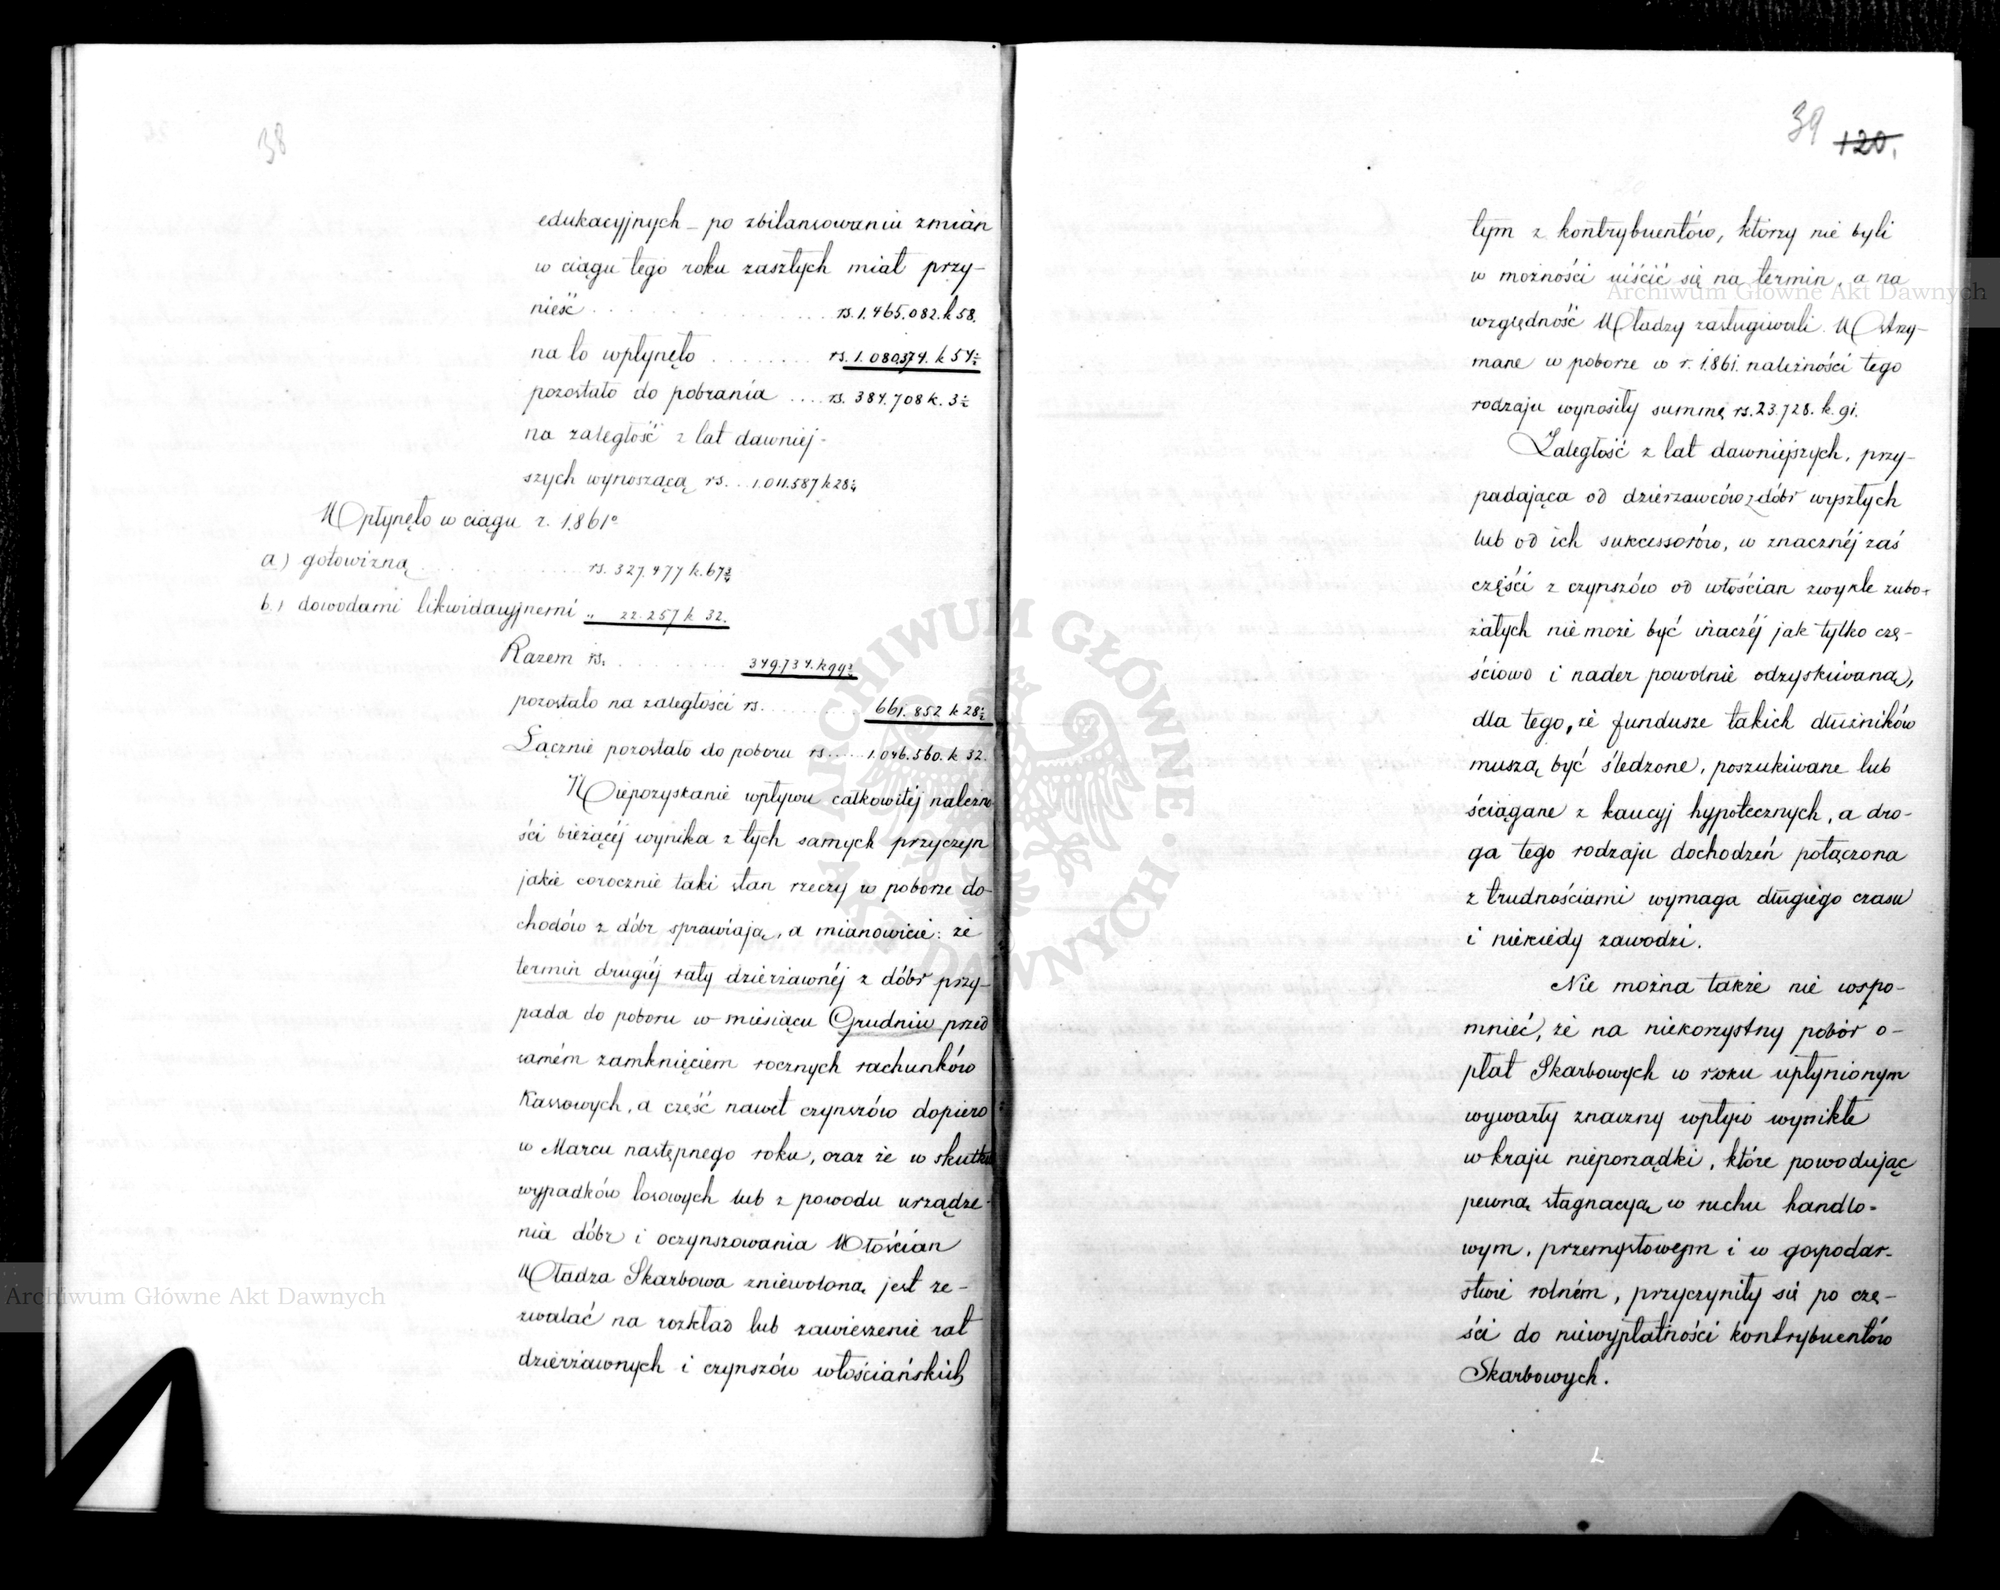 38
edukacyjnych – po zbilansowaniu zmian
w ciągu tego roku zaszłych miał przy-
nieść . . . . . . rs. 1.465.082. k 58.
na to wpłynęło . . . . . . rs. 1.080374. k 54½
pozostało do pobrania .... rs. 384.708 k. 3½
na zaległość z lat dawniej-
szych wynoszącą rs. .. 1.011.587 k 28¼
Wpłynęło w ciągu r. 1861º
a) gotowizną . . . . . . rs. 327.477 k. 67¾
b.) dowodami likwidacyjnemi „ 22.257 k 32.
Razem rs. . . . . . . 349.734. k 99¾
pozostało na zaległości rs. . . . . . . 661.852 k 28½
Łącznie pozostało do poboru rs..... 1.046.560. k 32.
Niepozyskanie wpływu całkowitéj należno
ści bieżącéj wynika z tych samych przyczyn
jakie corocznie taki stan rzeczy w poborze do-
chodów z dóbr sprawiają, a mianowicie: że
termin drugiéj raty dzierżawnéj z dóbr przy-
pada do poboru w miesiącu Grudniu przed
samém zamknięciem rocznych rachunków
Kassowych, a część nawet czynszów dopiero
w Marcu następnego roku, oraz że w skutku
wypadków losowych lub z powodu urządze-
nia dóbr i oczynszowania Włościan
Władza Skarbowa zniewoloną jest ze-
zwalać na rozkład lub zawieszenie rat
dzierżawnych i czynszów włościańskich
39 120.
tym z kontrybuentów, którzy nie byli
w możności uiścić się na termin, a na
względność Władzy zasługiwali. Wstrzy-
mane w poborze w r. 1861. należności tego
rodzaju wynosiły summę rs. 23.728. k. 91.
Zaległość z lat dawniejszych, przy-
padająca od dzierżawców z dóbr wyszłych
lub od ich sukcessorów, w znacznéj zaś
części z czynszów od włościan zwykle zubo-
żałych nie może być inaczéj jak tylko czę-
ściowo i nader powolnie odzyskiwaną,
dla tego, że fundusze takich dłużników
muszą być śledzone, poszukiwane lub
ściągane z kaucyj hypotecznych, a dro-
ga tego rodzaju dochodzeń połączona
z trudnościami wymaga długiego czasu
i niekiedy zawodzi.
Nie można także nie wspo-
mnieć, że na niekorzystny pobór o-
płat Skarbowych w roku upłynionym
wywarły znaczny wpływ wynikłe
w kraju nieporządki, które powodując
pewną stagnacyą w ruchu handlo-
wym, przemysłowym i w gospodar-
stwie rolném, przyczyniły się po czę-
ści do niewypłatności kontrybuentów
Skarbowych.
Archiwum Główne Akt Dawnych
Archiwum Główne Akt Dawnych
ARCHIWUM GŁÓWNE · AKT DAWNYCH ·